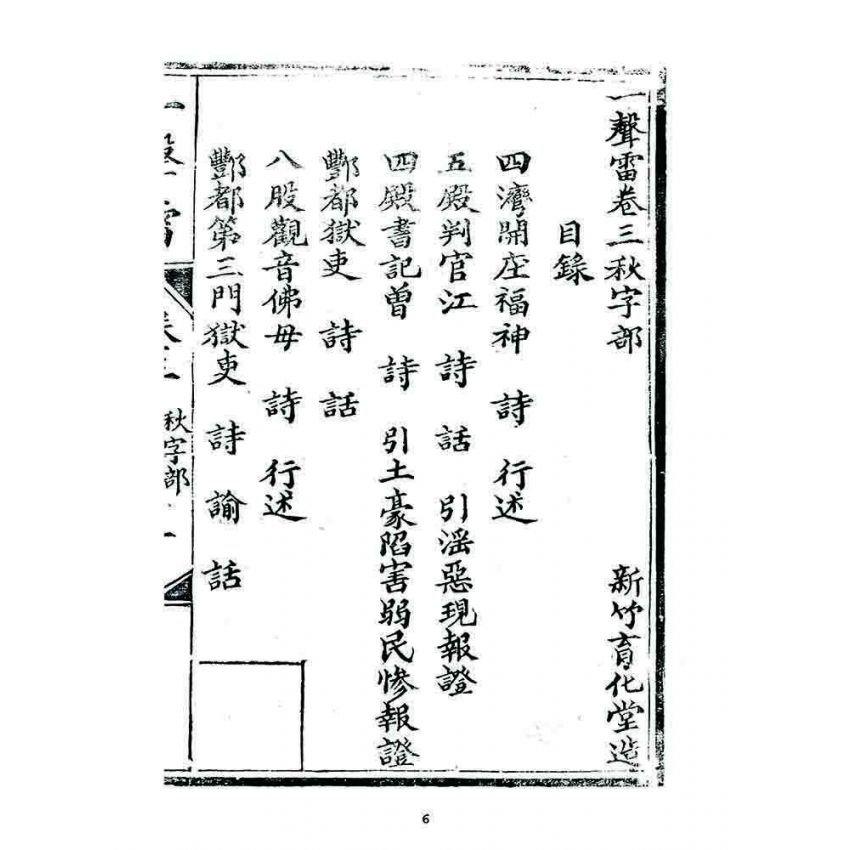 一聲雷卷三秋字部 新竹育化堂造
目錄
四濟開座福神 詩 行述
五殿判官江 詩 話 引淫惡現報證
四殿書記曾 詩 引土豪陷害弱民慘報證
酆都獄吏 詩 話
八股觀音佛母 詩 行述
酆都第三門獄吏 詩 諭 話
一聲雷 卷三 秋字部 一
6